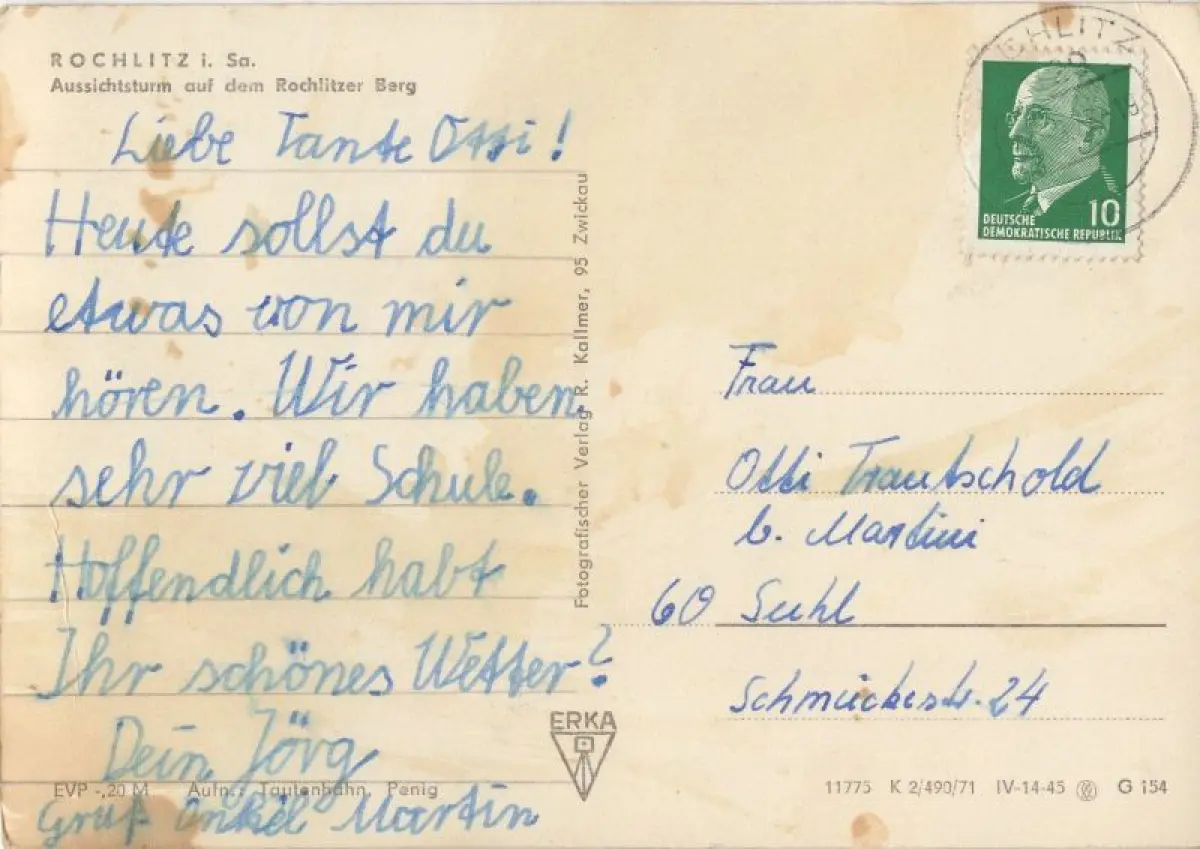 ROCHLITZ i. Sa.
Aussichtsturm auf dem Rochlitzer Berg
Liebe Tante Otti!
Heute sollst du
etwas von mir
hören. Wir haben
sehr viel Schule.
Hoffendlich habt
Ihr schönes Wetter?
Dein Jörg
EVP -,20 M Aufn.: Tautenhahn, Penig
Gruß Onkel Martin
Fotografischer Verlag R. Kallmer, 95 Zwickau
ERKA
10
DEUTSCHE
DEMOKRATISCHE REPUBLIK
Frau
Otti Trautschold
b. Martini
60 Suhl
Schmückestr. 24
11775 K 2/490/71 IV-14-45 G 154